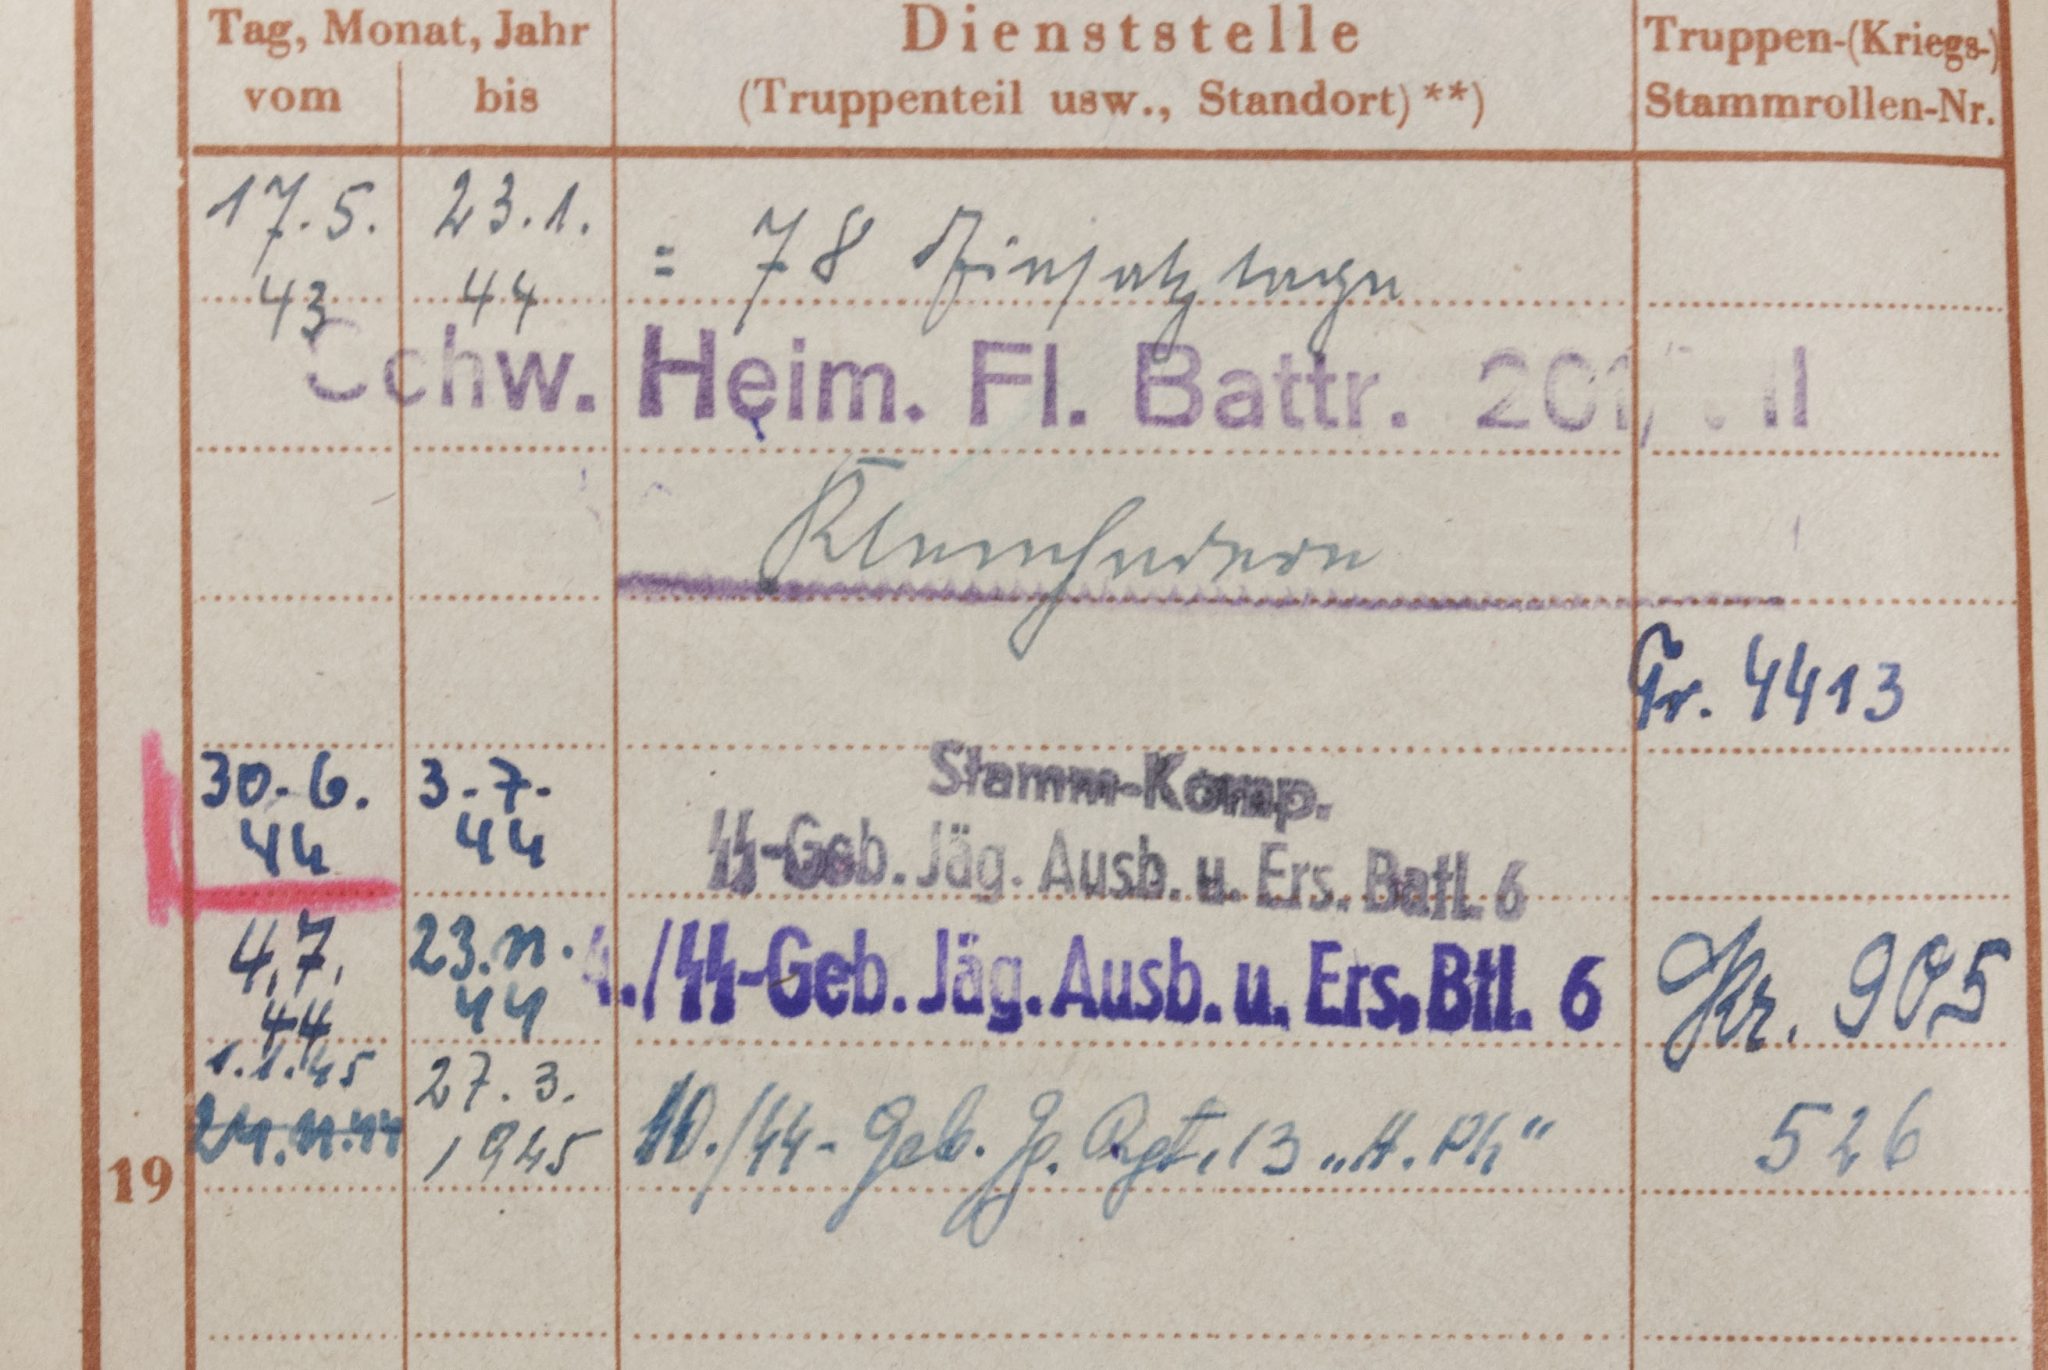 Tag, Monat, Jahr
vom bis
Dienststelle
(Truppenteil usw., Standort) **)
Truppen-(Kriegs-)
Stammrollen-Nr.
17.5. 23.1.
43 44
= 78 Einsatztage
Schw. Heim. Fl. Battr. 201/ II
Gr. 4413
30.6. 3.7.
44 44
Stamm-Komp.
SS-Geb. Jäg. Ausb. u. Ers. Batl. 6
4.7. 23.11.
44 44
4./SS-Geb. Jäg. Ausb. u. Ers. Btl. 6
Kr. 905
1.1.45 27.3.
24.11.44 1945
10./SS-Geb. Jg. Rgt. 13 „A. Ph“
526
19